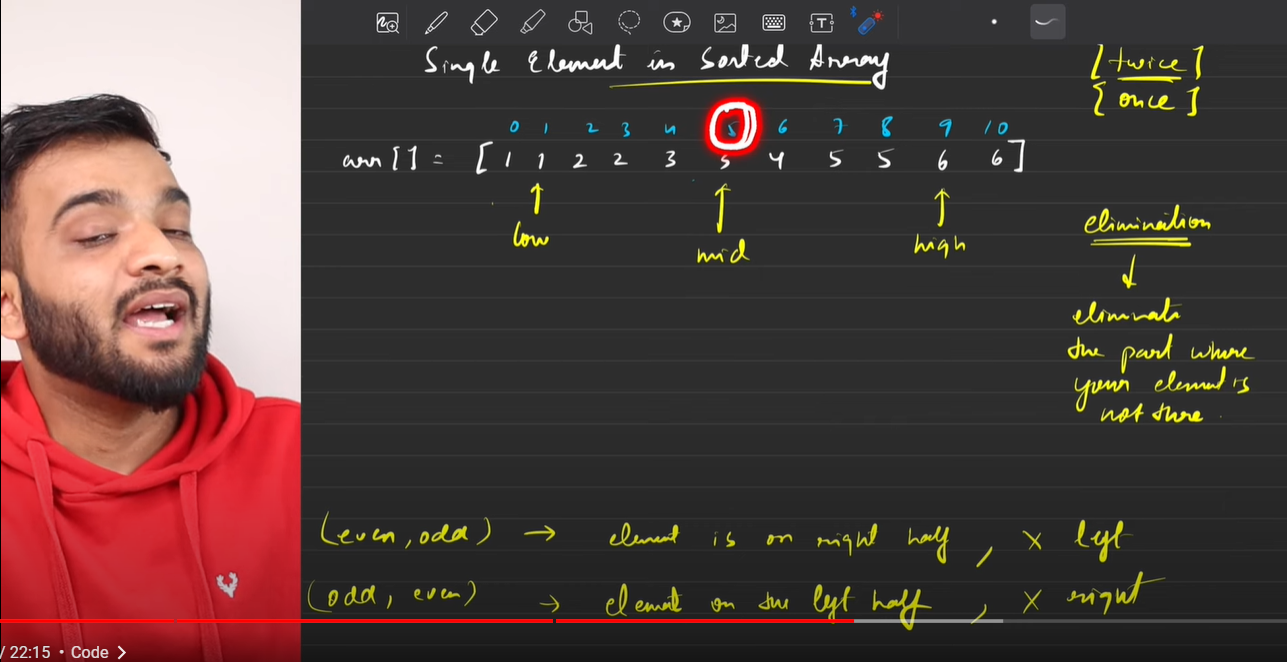 Single Element in Sorted Array
[twice]
[once]
0 1 2 3 4 5 6 7 8 9 10
arr[] = [1 1 2 2 3 3 4 5 5 6 6]
low mid high
elimination
eliminate
the part where
your element is
not there.
(even, odd) → element is on right half, x left
(odd, even) → element on the left half, x right
/ 22:15 • Code >